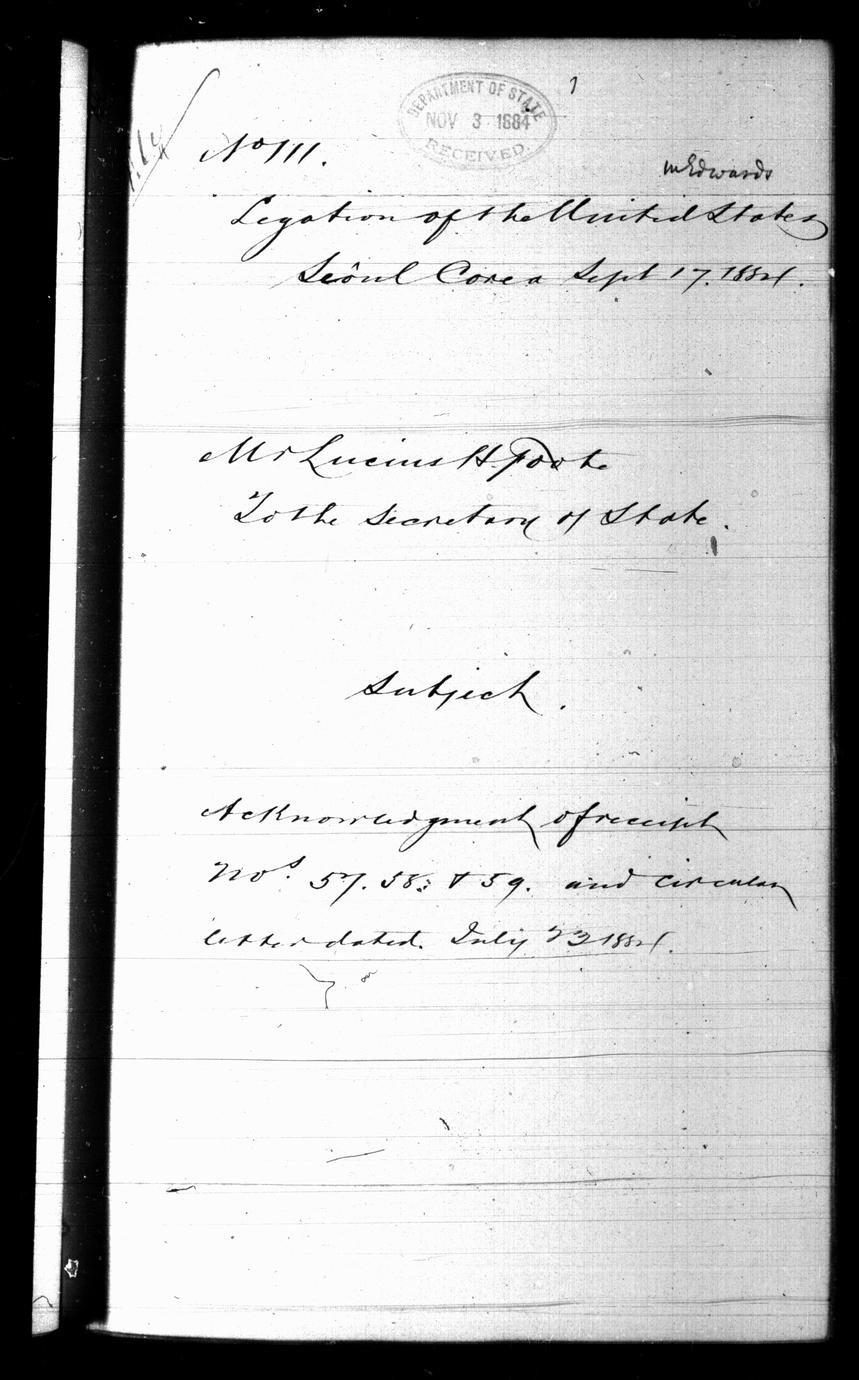 DEPARTMENT OF STATE
NOV 3 1884
RECEIVED
No 111.
Mr Edwards
Legation of the United States
Seôul Corea Sept 17. 1884.
Mr Lucius H. Foote
To the Secretary of State.
Subject.
Acknowledgment of receipt
Nos. 57. 58. & 59. and circular
letter dated. July 23 1884.